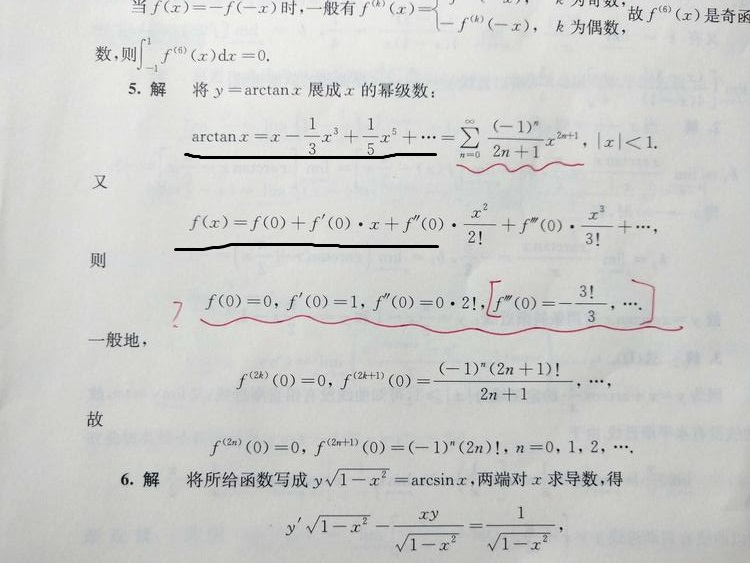 当 f(x)=-f(-x) 时,一般有 f^{(k)}(x)={ -f^{(k)}(-x), k 为奇数, k 为偶数, 故 f^{(6)}(x) 是奇函
数,则∫_{-1}^{1} f^{(6)}(x)dx=0.
5. 解 将 y=arctan x 展成 x 的幂级数:
arctan x = x - \frac{1}{3}x^3 + \frac{1}{5}x^5 + … = \sum_{n=0}^{∞} \frac{(-1)^n}{2n+1}x^{2n+1}, |x|<1.
又
f(x)=f(0)+f'(0)·x+f''(0)·\frac{x^2}{2!}+f'''(0)·\frac{x^3}{3!}+…,
则
? f(0)=0, f'(0)=1, f''(0)=0·2!, [f'''(0)=-\frac{3!}{3}, ….]
一般地,
f^{(2k)}(0)=0, f^{(2k+1)}(0)=\frac{(-1)^n(2n+1)!}{2n+1}, …,
故
f^{(2n)}(0)=0, f^{(2n+1)}(0)=(-1)^n(2n)!, n=0, 1, 2, ….
6. 解 将所给函数写成 y\sqrt{1-x^2}=arcsin x,两端对 x 求导数,得
y'\sqrt{1-x^2} - \frac{xy}{\sqrt{1-x^2}} = \frac{1}{\sqrt{1-x^2}},